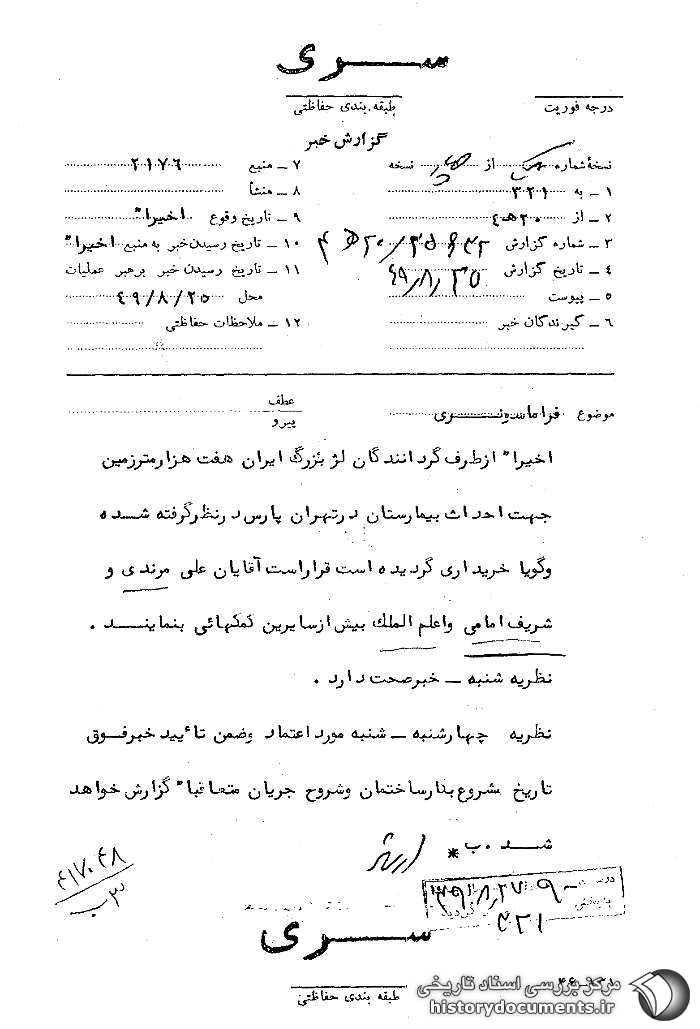 سری
درجه فوریت
طبقه بندی حفاظتی
گزارش خبر
نسخهٔ شماره از نسخه
۱ ـ به ۳۲۱
۲ ـ از ۲۰ ه ٤
۳ ـ شماره گزارش
٤ ـ تاریخ گزارش
۵ ـ پیوست
٦ ـ گیرندگان خبر
۷ ـ منبع ۲۱۷٦
۸ ـ منشأ
۹ ـ تاریخ وقوع اخیرا"
۱۰ ـ تاریخ رسیدن خبر به منبع اخیرا"
۱۱ ـ تاریخ رسیدن خبر برهبر عملیات
محل ٤۹/۸/۲۵
۱۲ ـ ملاحظات حفاظتی
موضوع فراماسونری
عطف
پیرو
اخیرا" ازطرف گردانندگان لژ بزرگ ایران هفت هزارمترزمین
جهت احداث بیمارستان درتهران پارس درنظرگرفته شده
وگویا خریداری گردیده است قراراست آقایان علی مرندی و
شریف امامی واعلم الملک بیش ازسایرین کمکهائی بنمایند .
نظریه شنبه ـ خبرصحت دارد .
نظریه چهارشنبه ـ شنبه مورد اعتماد وضمن تأیید خبرفوق
تاریخ مشروع بنارساختمان وشروح جریان متعاقبا" گزارش خواهد
شد .ب *
٤۱۷۰٤۸
سری
طبقه بندی حفاظتی
مرکز بررسی اسناد تاریخی
historydocuments.ir